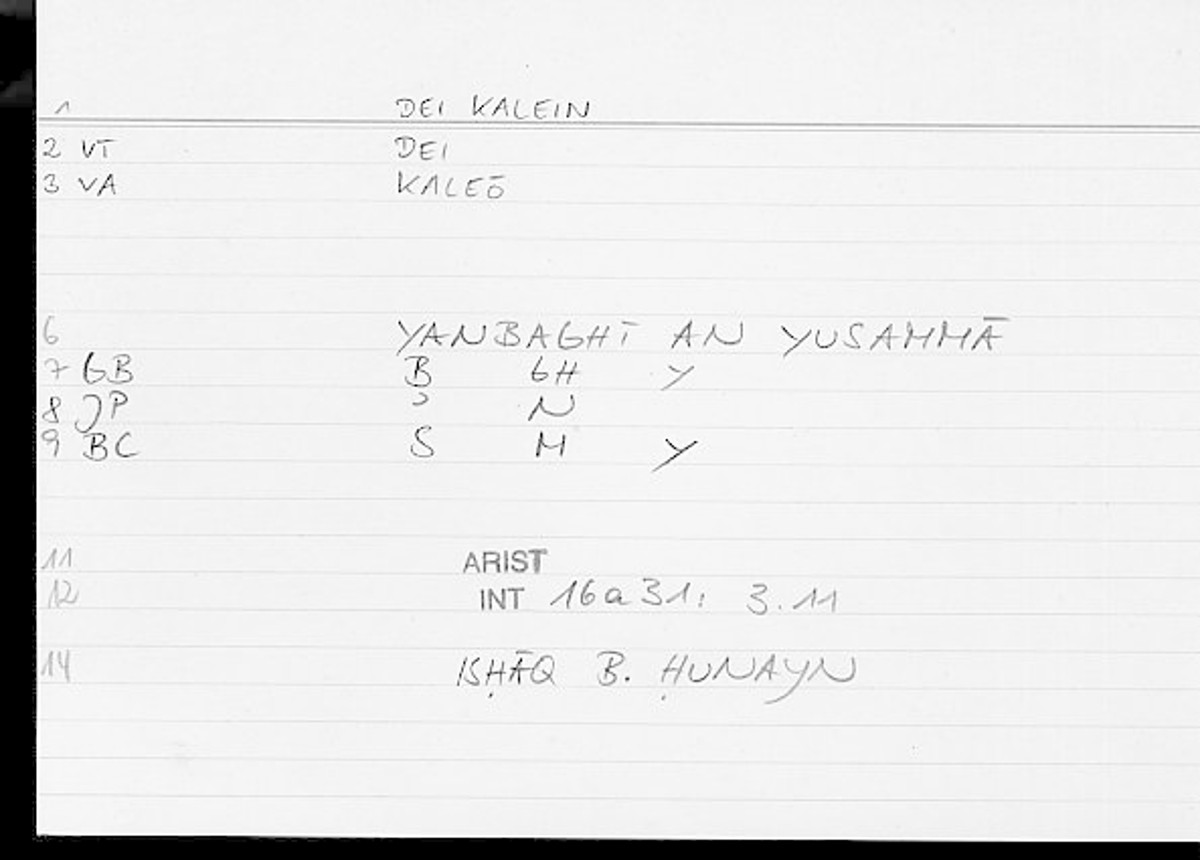 1 DEI KALEIN
2 VT DEI
3 VA KALEŌ
6 YANBAGHĪ AN YUSAMMĀ
7 GB B GH Y
8 JP ʾ N
9 BC S M Y
11 ARIST
12 INT 16a31: 3.11
14 ISḤĀQ B. ḤUNAYN